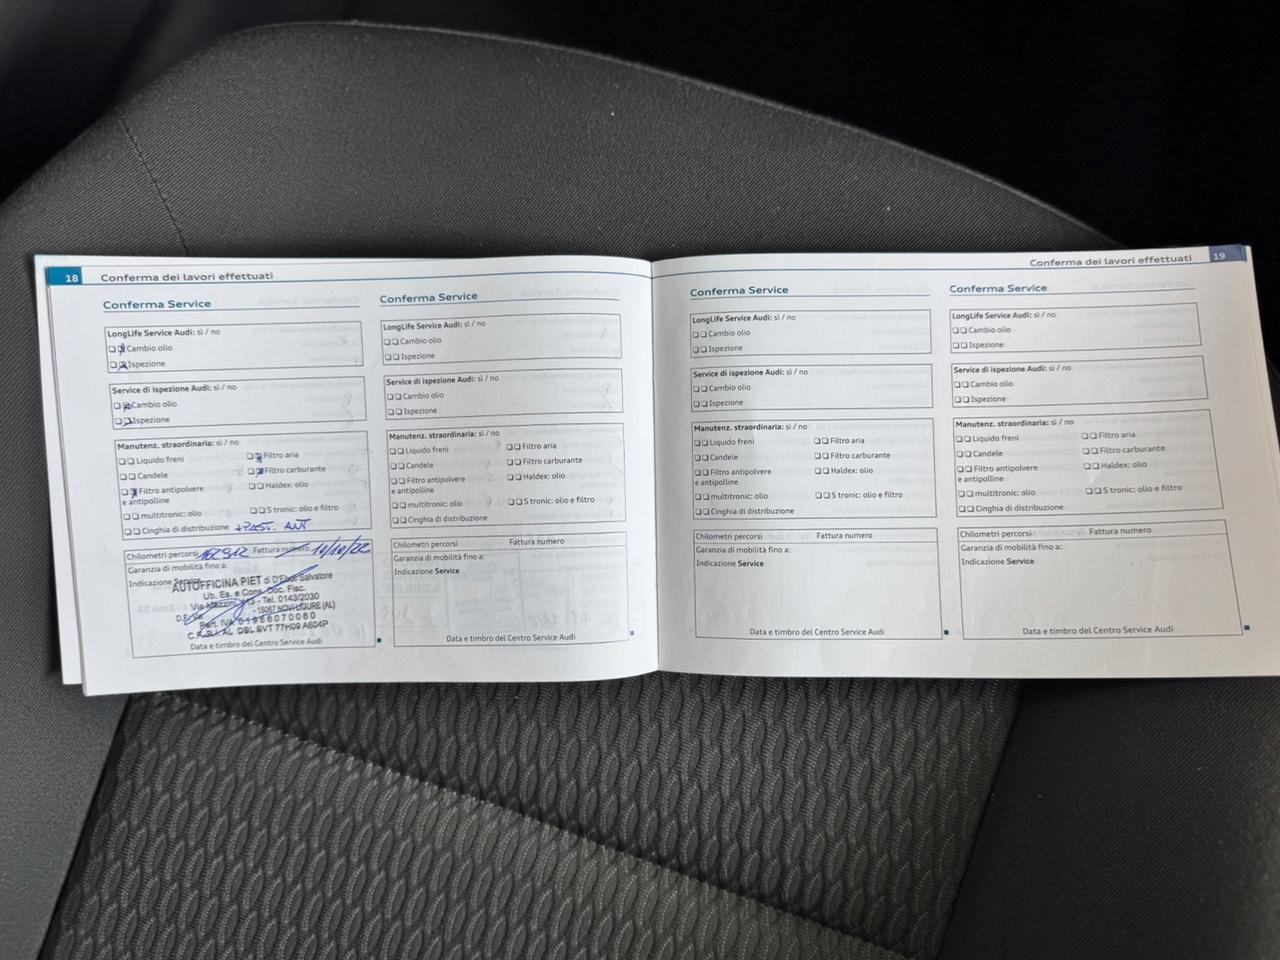 18 Conferma dei lavori effettuati
Conferma Service
LongLife Service Audi: sì / no
Cambio olio
Ispezione
Service di ispezione Audi: sì / no
Cambio olio
Ispezione
Manutenz. straordinaria: sì / no
Liquido freni
Filtro aria
Candele
Filtro carburante
Filtro antipolvere
e antipolline
Haldex: olio
multitronic: olio
S tronic: olio e filtro
Cinghia di distribuzione +PAST. ANT
Chilometri percorsi Fattura numero 10/10/22
Garanzia di mobilità fino a:
Indicazione Service
AUTOFFICINA PIET di D'Elios Salvatore
Ub. Es. e Cons. Doc. Fisc.
Via Mazzini, 113 - Tel. 0143/2030
- 15067 NOVI LIGURE (AL)
Part. IVA 01966070060
AL DBL SVT 77H09 A604P
Data e timbro del Centro Service Audi
Conferma Service
LongLife Service Audi: sì / no
Cambio olio
Ispezione
Service di ispezione Audi: sì / no
Cambio olio
Ispezione
Manutenz. straordinaria: sì / no
Liquido freni
Filtro aria
Candele
Filtro carburante
Filtro antipolvere
e antipolline
Haldex: olio
multitronic: olio
S tronic: olio e filtro
Cinghia di distribuzione
Chilometri percorsi Fattura numero
Garanzia di mobilità fino a:
Indicazione Service
Data e timbro del Centro Service Audi
Conferma dei lavori effettuati 19
Conferma Service
LongLife Service Audi: sì / no
Cambio olio
Ispezione
Service di ispezione Audi: sì / no
Cambio olio
Ispezione
Manutenz. straordinaria: sì / no
Liquido freni
Filtro aria
Candele
Filtro carburante
Filtro antipolvere
e antipolline
Haldex: olio
multitronic: olio
S tronic: olio e filtro
Cinghia di distribuzione
Chilometri percorsi Fattura numero
Garanzia di mobilità fino a:
Indicazione Service
Data e timbro del Centro Service Audi
Conferma Service
LongLife Service Audi: sì / no
Cambio olio
Ispezione
Service di ispezione Audi: sì / no
Cambio olio
Ispezione
Manutenz. straordinaria: sì / no
Liquido freni
Filtro aria
Candele
Filtro carburante
Filtro antipolvere
e antipolline
Haldex: olio
multitronic: olio
S tronic: olio e filtro
Cinghia di distribuzione
Chilometri percorsi Fattura numero
Garanzia di mobilità fino a:
Indicazione Service
Data e timbro del Centro Service Audi